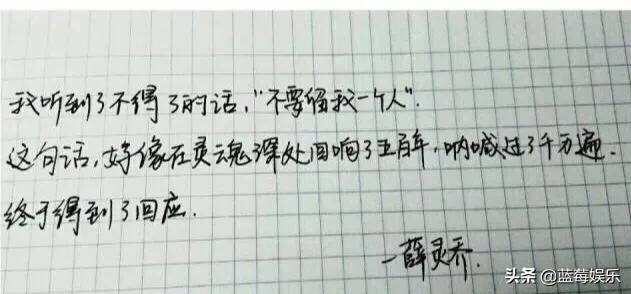 我听到了不得了的话，"不要留我一个人".
这句话，好像在灵魂深处回响了五百年，呐喊过了千万遍.
终于得到了回应.
—薛灵乔.
头条 @蓝莓娱乐